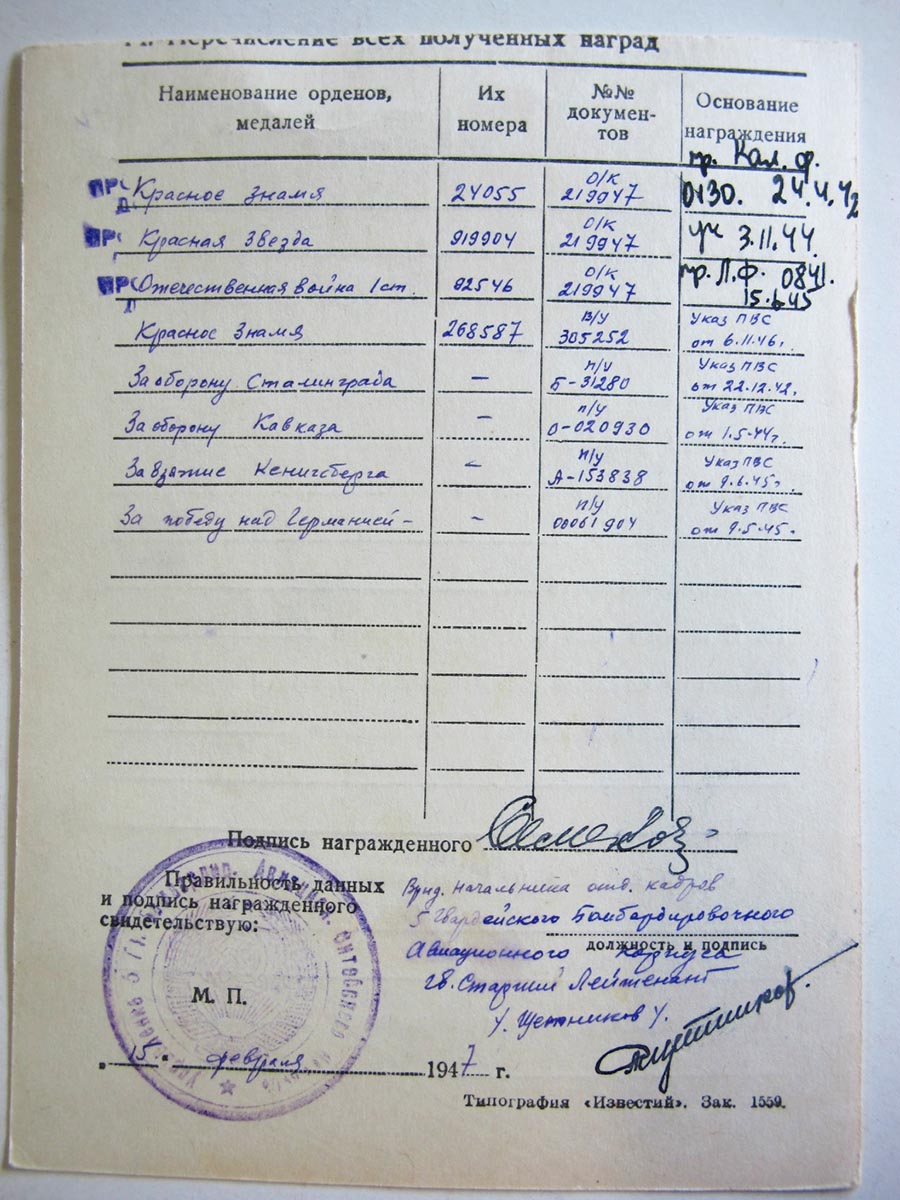 Перечисление всех полученных наград
Наименование орденов, медалей
Их номера
№№ докумен-тов
Основание награждения
пр. Кал. ф.
Красное знамя 24055 О/К 219947 0130. 24.4.42
Красная Звезда 919904 О/К 219947 ук 3.11.44.
Отечественная война 1 ст. 92546 О/К 219947 пр. Л.Ф. 0841. 15.6.45
Красное Знамя 268587 В/У 305252 Указ ПВС от 6.11.46г.
За оборону Сталинграда — п/у Б-31280 Указ ПВС от 22.12.42г.
За оборону Кавказа — п/у О-020930 Указ ПВС от 1.5.44г.
За взятие Кенигсберга — п/у А-153838 Указ ПВС от 9.6.45г.
За победу над Германией — — п/у 0061904 Указ ПВС от 9.5.45г.
Подпись награжденного
Правильность данных
и подпись награжденного
свидетельствую:
Врид. начальника отд. кадров
5 Гвардейского Бомбардировочного
должность и подпись
Авиационного корпуса
гв. Старший Лейтенант
М. П.
"15" февраля 1947 г.
Типография «Известий». Зак. 1559.